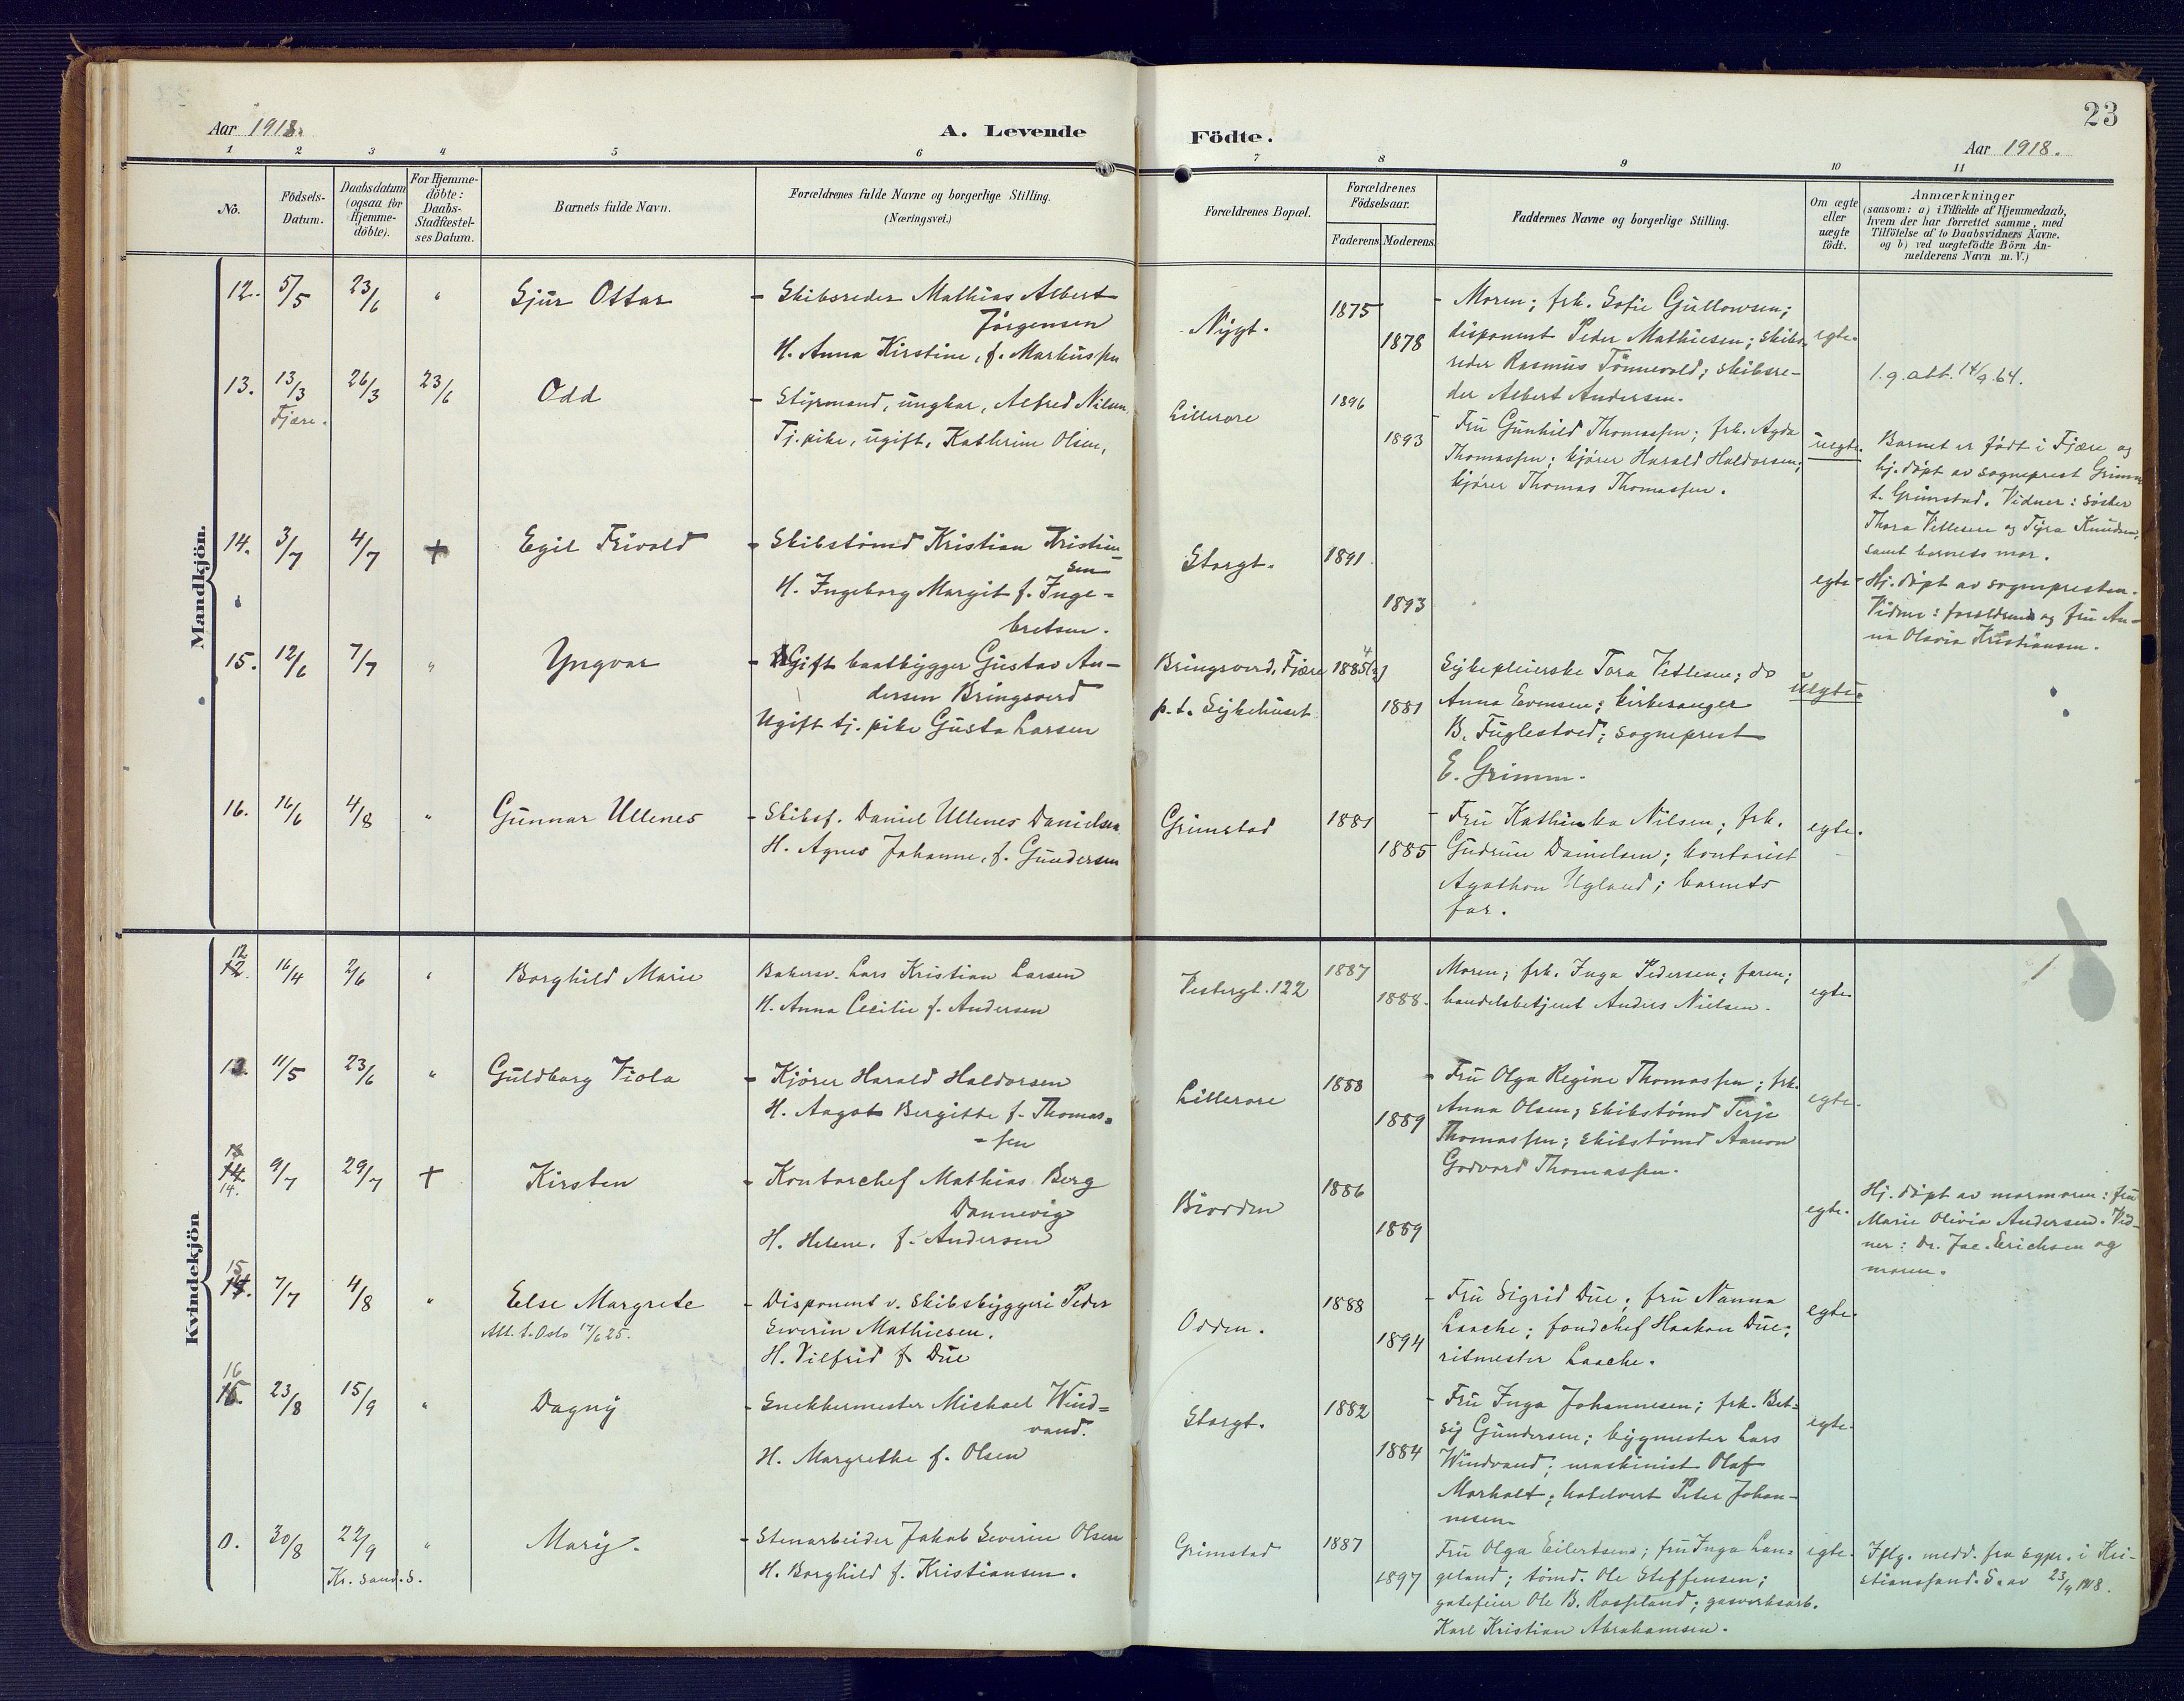 23
Aar 1918.
A. Levende Födte.
Aar 1918.
1 2 3 4 5 6 7 8 9 10 11
No.
Födsels-Datum.
Daabsdatum (ogsaa for Hjemme-döbte).
For Hjemme-döbte: Daabs-Stadfæstel-ses Datum.
Barnets fulde Navn.
Forældrenes fulde Navne og borgerlige Stilling.
(Næringsvei.)
Forældrenes Bopæl.
Forældrenes Födselsaar.
Faderens. Moderens.
Faddernes Navne og borgerlige Stilling.
Om ægte eller uægte födt.
Anmærkninger
(saasom: a) i Tilfælde af Hjemmedaab,
hvem der har forrettet samme, med
Tilföielse af to Daabsvidners Navne.
og b) ved uægtefödte Börn An-
melderens Navn m. V.)
Mandkjön.
12. 5/5 23/6 " Sjur Ottar
- Skibsreder Mathias Albert
Jörgensen
H. Anna Kirstine, f. Markussen
Nygt. 1875 1878
- Moren; frk. Sofie Gullowsen;
disponent Peder Mathiesen; skibs-
reder Rasmus Tönnevold; skibsre-
der Albert Andersen.
egte.
1.g.att. 14/9.64.
13. 13/3 26/3 23/6 Odd
Fjære.
- Styrmand, ungkar, Alfred Nilsen,
Tj.pike, ugift, Kathrine Olsen,
Lillerore 1896 1893
- Fru Gunhild Thomassen; frk. Agda
Thomassen; kjører Harald Haldorsen;
kjører Thomas Thomassen.
uegte.
Barnet er født i Fjære og
hj. døpt av sogneprest Grimm
t. Grimstad. Vidner: søster
Thora Vetlesen og Tyra Knudsen,
samt barnets mor.
14. 3/7 4/7 + Egil Trivold
- Skibstömd Kristian Kristian-
sen
H. Ingeborg Margit f. Inge-
bretsen.
Storgt. 1891 1893
egte
Hj. døpt av sognepresten.
Vidner: foreldrene og fru An-
na Olavia Kristiansen.
15. 12/6 7/7 " Yngvar
- Gift baatbygger Gustav An-
dersen Bringsverd
Ugift tj. pike Gusta Larsen
Bringsverd, Fjære
p.t. Sykehuset
1885 1881
Sykepleierske Tora Vetlesen; do
Anna Evensen; kirkesanger
B. Fuglestved; sogneprest
E. Grimm.
uegte.
16. 16/6 4/8 " Gunnar Ullenes
- Skibsf. Daniel Ullenes Danielsen
H. Agnes Johanne, f. Gundersen
Grimstad 1881 1885
- Fru Kathinka Nilsen; frk.
Gudrun Danielsen; kontorist
Agathon Ugland; barnets
far.
egte.
Kvindekjön
12. 16/4 2/6 " Borghild Marie
Bakersv. Lars Kristian Larsen
H. Anna Cecilie f. Andersen
Vestergt. 122 1887 1888.
Moren; frk. Inga Pedersen; faren;
handelsbetjent Anders Nielsen.
egte.
13. 11/5 23/6 " Guldborg Viola
- Kjörer Harald Haldorsen
H. Aagot Bergitte f. Thomas-
-sen
Lillerore 1888 1889
- Fru Olga Regine Thomassen; frk.
Anna Olsen; skibstömd Terje
Thomassen; skibstömd Aanon
Godvard Thomassen.
egte.
14. 9/7 29/7 + Kirsten
- Kontorchef Mathias Berg
Dannevig
H. Helene, f. Andersen
Biodden 1886 1889
egte.
Hj. døpt av mormoren: fru
Marie Olivia Andersen. Vid-
ner: Dr. Jac. Erichsen og
moren.
15 7/7 4/8 " Else Margrete
Att. t. Oslo 17/6 25.
- Disponent v. skibsbyggeri Peder
Severin Mathiesen.
H. Vilfrid f. Due
Odden. 1888 1894
- Fru Sigrid Due; fru Nanna
Laache; fondchef Haakon Due;
ritmester Laache.
egte.
16 23/8 15/9 " Dagny
- Snekkermester Michael Wind-
vand.
H. Margrethe f. Olsen
Storgt. 1882 1884
- Fru Inga Johannesen; frk. Bet-
sy Gundersen; bygmester Lars
Windvand; maskinist Olaf
Morholt; hotelvert Peter Johan-
nesen.
egte.
0. 30/8 22/9 " Mary.
Kr. sand. S.
- Stenarbeider Jakob Severin Olsen
H. Borghild f. Kristiansen.
Grimstad 1887 1897
Fru Olga Eilertsen; fru Inga Lan-
geland; tömd. Ole Steffensen;
gatefeier Ole B. Rosseland; gasverksarb.
Karl Kristian Abrahamsen.
egte.
Iflg. medd. fra sgpr. i Kri-
stianssand. S. av 23/9 1918.